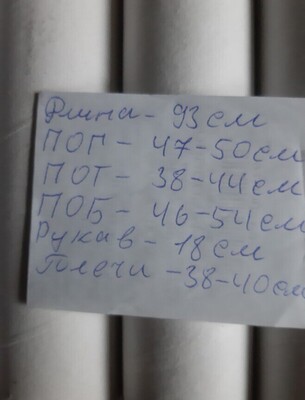 Длина - 93 см
ПОГ - 47-50см
ПОТ - 38-44см
ПОБ - 46-54см
Рукав - 18 см
Плечи - 38-40см